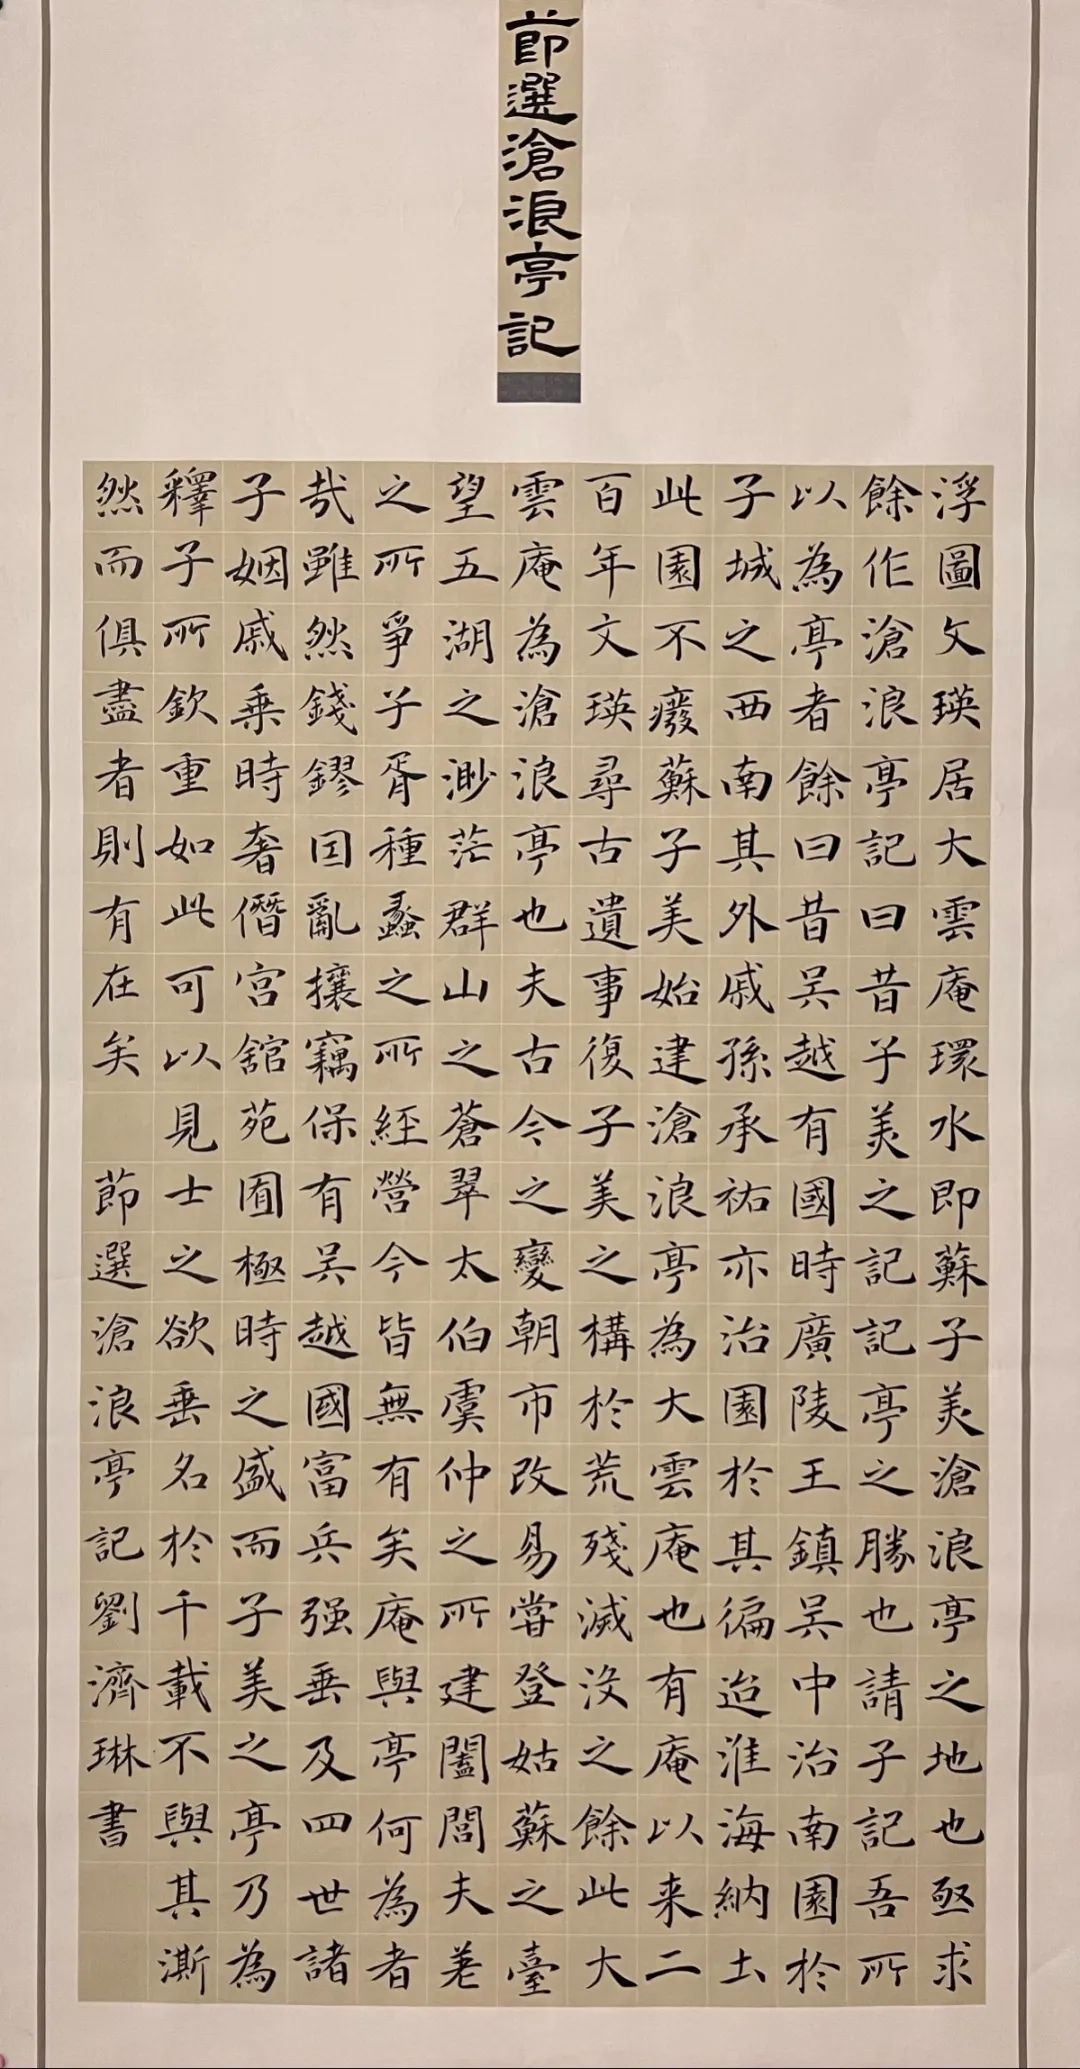 節選滄浪亭記
浮圖文瑛居大雲庵環水即蘇子美滄浪亭之地也亟求
餘作滄浪亭記曰昔子美之記記亭之勝也請子記吾所
以為亭者餘曰昔吴越有國時廣陵王鎮吴中治南園於
子城之西南其外戚孫承祐亦治園於其偏迨淮海納土
此園不廢蘇子美始建滄浪亭為大雲庵也有庵以来二
百年文瑛尋古遺事復子美之構於荒殘滅没之餘此大
雲庵為滄浪亭也夫古今之變朝市改易嘗登姑蘇之臺
望五湖之渺茫群山之蒼翠太伯虞仲之所建闔閭夫差
之所爭子胥種蠡之所經營今皆無有矣庵與亭何為者
哉雖然錢鏐因亂攘竊保有吴越國富兵强垂及四世諸
子姻戚乗時奢僭宫舘苑囿極時之盛而子美之亭乃為
釋子所欽重如此可以見士之欲垂名於千載不與其澌
然而俱盡者則有在矣 節選滄浪亭記劉濟琳書